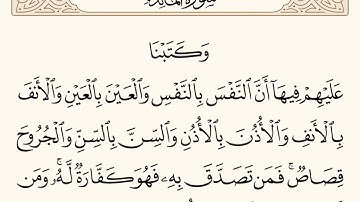 سُورَةُ المَائِدَةِ
وَكَتَبْنَا
عَلَيْهِمْ فِيهَآ أَنَّ ٱلنَّفْسَ بِٱلنَّفْسِ وَٱلْعَيْنَ بِٱلْعَيْنِ وَٱلْأَنفَ
بِٱلْأَنفِ وَٱلْأُذُنَ بِٱلْأُذُنِ وَٱلسِّنَّ بِٱلسِّنِّ وَٱلْجُرُوحَ
قِصَاصٌۚ فَمَن تَصَدَّقَ بِهِۦ فَهُوَ كَفَّارَةٌ لَّهُۥۚ وَمَن